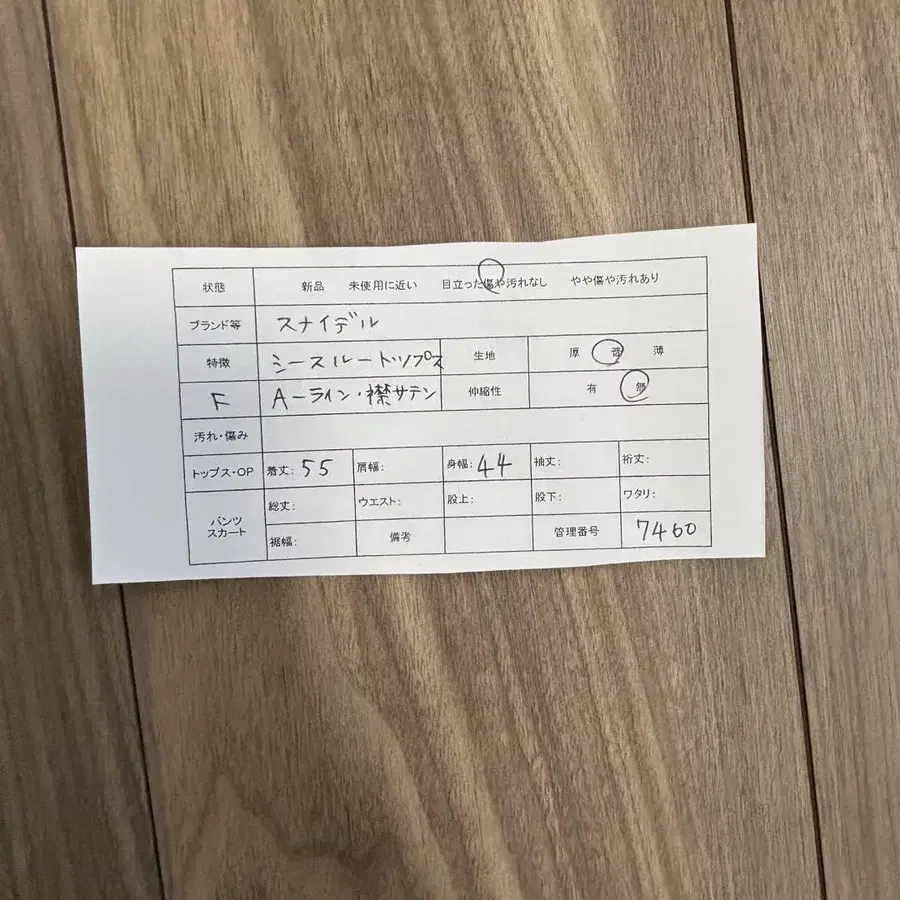 状態 新品 未使用に近い 目立った傷や汚れなし やや傷や汚れあり
ブランド等 スナイデル
特徴 シースルートップス 生地 厚 普 薄
F Aーライン・襟サテン 伸縮性 有 無
汚れ・傷み
トップス・OP 着丈: 55 肩幅: 身幅: 44 袖丈: 裄丈:
パンツ スカート 総丈: ウエスト: 股上: 股下: ワタリ:
裾幅: 備考 管理番号 7460